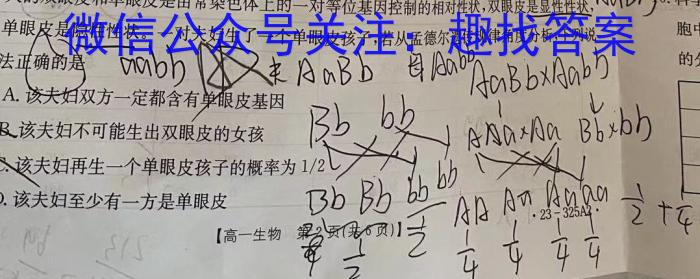 的双眼皮和单眼皮是由常染色体上的一对等位基因控制的相对性状,双眼皮是显性性状,
单眼皮是隐性性状。一对夫妇生了一个单眼皮孩子,若从孟德尔遗传规律角度分析,下列说
微信公众号关注:趣找答案
法正确的是
aabb
AaBb
Aabb
AaBb×Aabb
A. 该夫妇双方一定都含有单眼皮基因
Bb bb
AAa×Aa Bb×bb
B. 该夫妇不可能生出双眼皮的女孩
C. 该夫妇再生一个单眼皮孩子的概率为1/2
D. 该夫妇至少有一方是单眼皮
Bb Bb bb bb
AA Aa Aa aa
1/2 + 1/4
·23-325A2·
【高一生物 第2页(共6页)】
1/2 1/2
1/4 1/4 1/4 1/4
胞中
的分